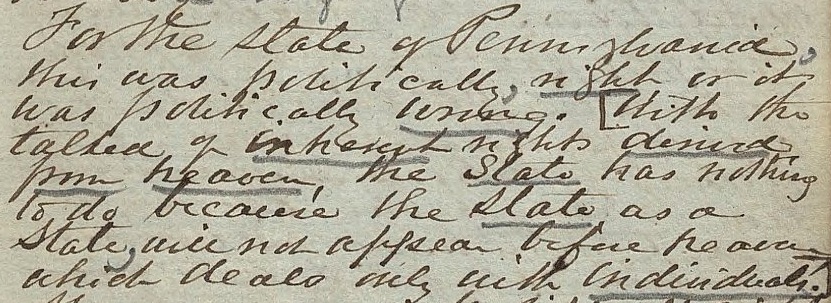 For the state of Pennsylvania,
this was politically, right or it
was politically wrong. [With the
talked of inherent rights derived
from heaven, the State has nothing
to do because the State, as a
State, will not appear before heaven
which deals only with individuals.